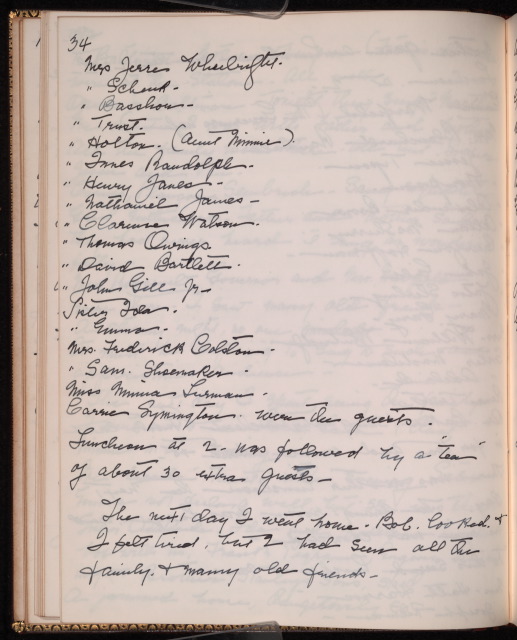 34
Mrs Jerre Wheelwright.
" Schenk -
" Basshor -
" Trust.
" Holton. (Aunt Minnie)
" Innes Randolph -
" Henry Janes -
" Nathaniel James -
" Clarence Watson.
" Thomas Owings
" David Bartlett.
" John Gill Jr -
Sister Ida.
" Emma.
Mrs. Frederick Colston -
" Sam. Shoemaker -
Miss Minna Lurman -
Carrie Symington. were the guests.
Luncheon at 2. was followed by a "tea"
of about 30 extra guests -
The next day I went home. Bob. looked. &
I felt tired. but I had seen all the
family. & many old friends -